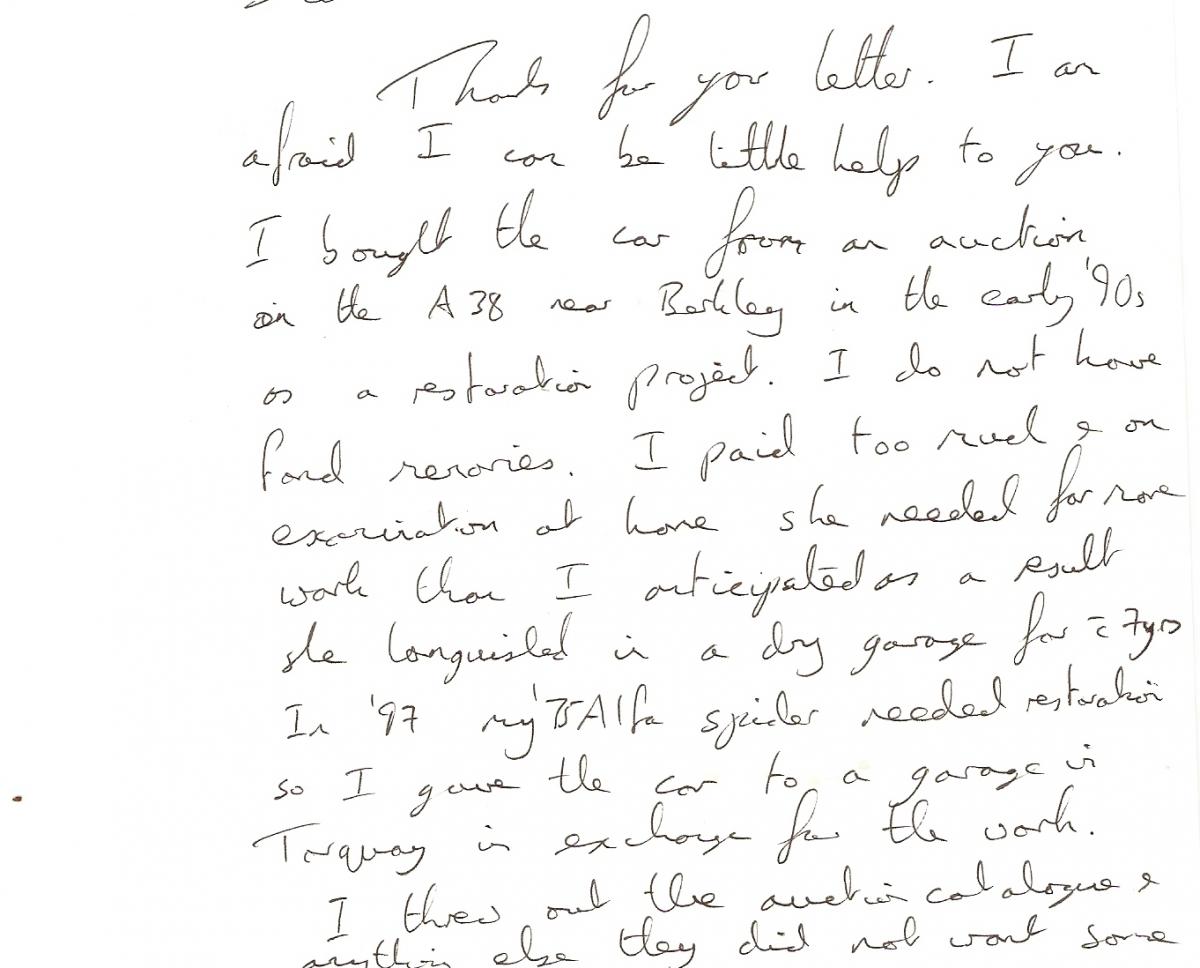 Thanks for your letter. I am
afraid I can be little help to you.
I bought the car from an auction
on the A38 near Berkley in the early '90s
as a restoration project. I do not have
fond memories. I paid too much & on
examination at home she needed far more
work than I anticipated as a result
she languished in a dry garage for ≈ 7yrs
In '97 my '75 Alfa spider needed restoration
so I gave the car to a garage in
Torquay in exchange for the work.
I threw out the auction catalogue &
anything else they did not want some